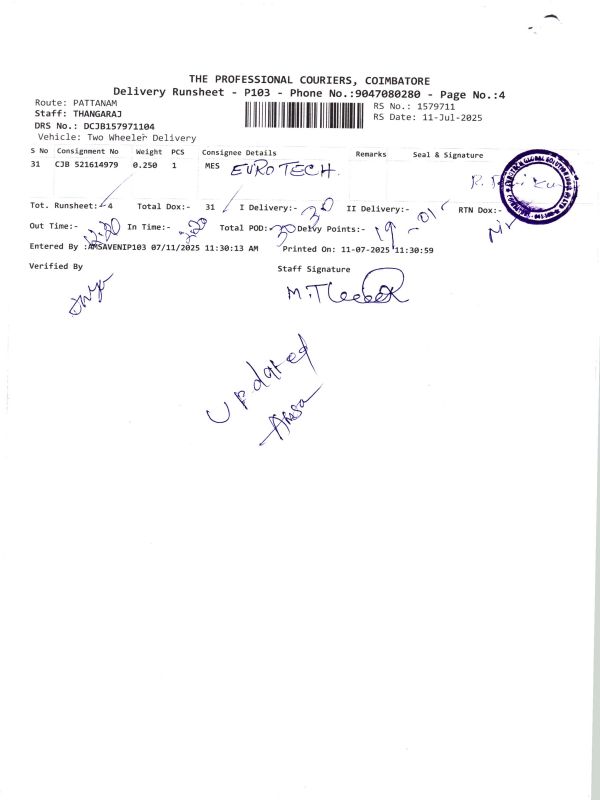 THE PROFESSIONAL COURIERS, COIMBATORE
Delivery Runsheet - P103 - Phone No.:9047080280 - Page No.:4
Route: PATTANAM
Staff: THANGARAJ
DRS No.: DCJB157971104
Vehicle: Two Wheeler Delivery
RS No.: 1579711
RS Date: 11-Jul-2025
S No Consignment No Weight PCS Consignee Details Remarks Seal & Signature
31 CJB 521614979 0.250 1 MES EURO TECH.
Tot. Runsheet:- 4 Total Dox:- 31 I Delivery:- 30 II Delivery:- 01 RTN Dox:- Nil
Out Time:- 12.20 In Time:- Total POD:- 30 Delvy Points:- 19
Entered By :AMSAVENIP103 07/11/2025 11:30:13 AM Printed On: 11-07-2025 11:30:59
Verified By
Staff Signature
Updated
Amsa